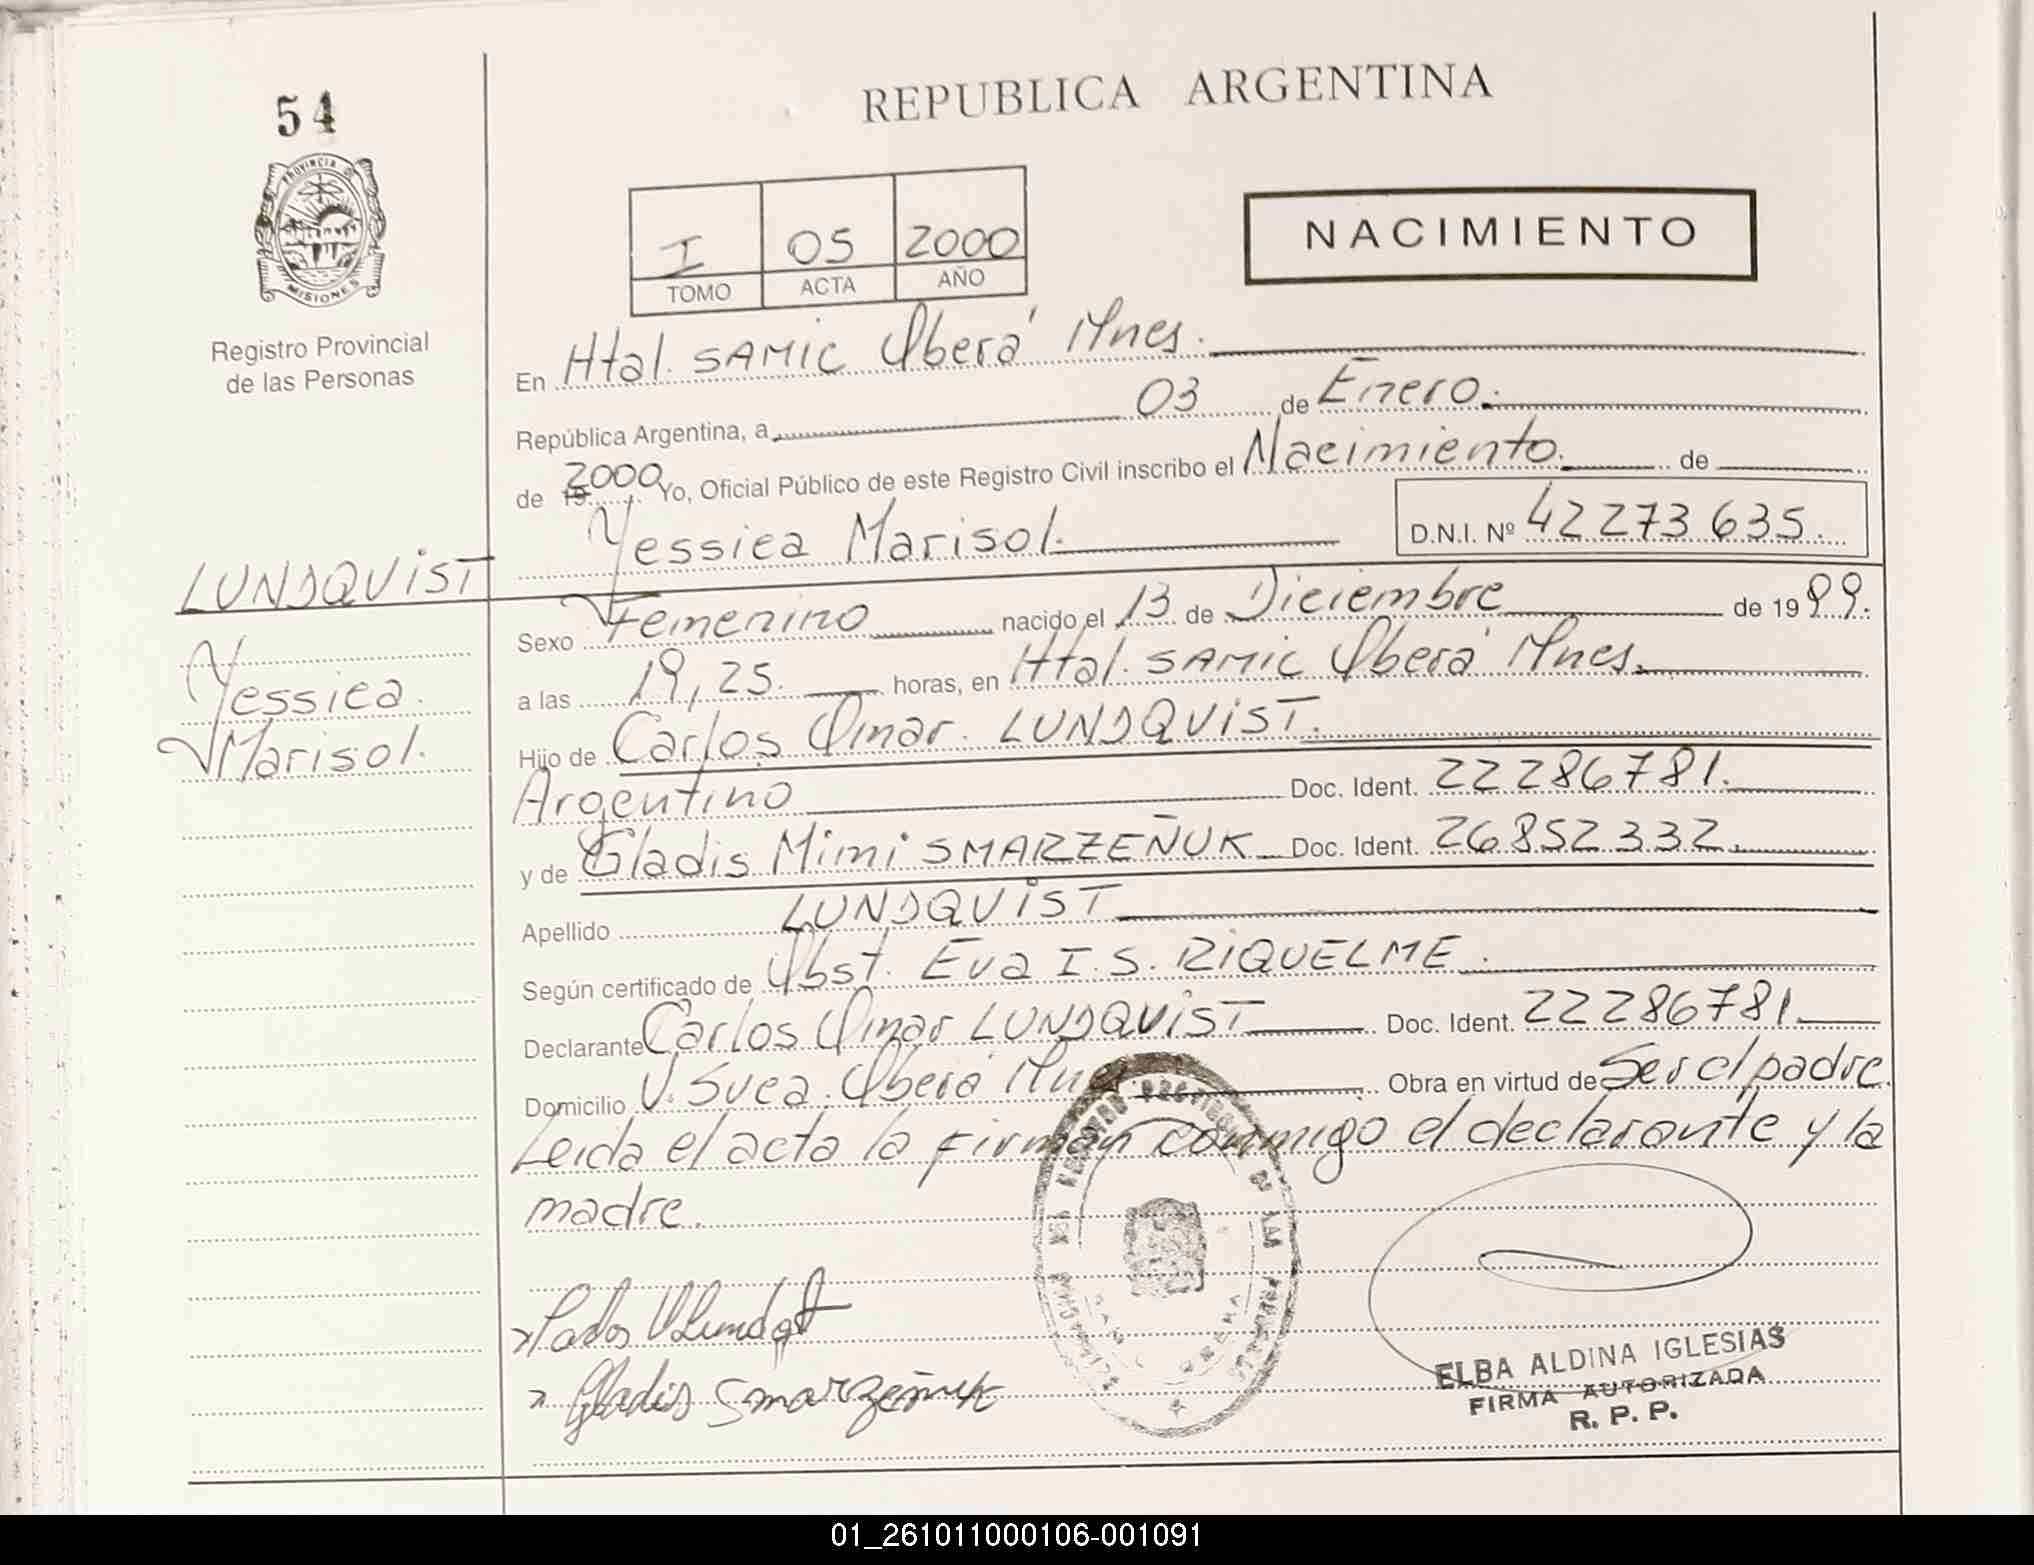 54
REPUBLICA ARGENTINA
PROVINCIA DE
MISIONES
Registro Provincial
de las Personas
I 05 2000
TOMO ACTA AÑO
NACIMIENTO
En Htal. SAMIC Oberá Mnes.
República Argentina, a 03 de Enero.
de 19 2000 Yo, Oficial Público de este Registro Civil inscribo el Nacimiento. de
Yessica Marisol. D.N.I. Nº 42273635.
LUNDQUIST
Yessica.
Marisol.
Sexo Femenino nacido el 13 de Diciembre de 1999.
a las 19,25. horas, en Htal. SAMIC Oberá Mnes.
Hijo de Carlos Omar. LUNDQUIST.
Argentino Doc. Ident. 22286781.
y de Gladis Mimi SMARZEÑUK Doc. Ident. 26852332.
Apellido LUNDQUIST
Según certificado de Obst. Eva I.S. RIQUELME.
Declarante Carlos Omar LUNDQUIST Doc. Ident. 22286781.
Domicilio V. Suea. Oberá Mnes Obra en virtud de Ser el padre.
Leida el acta la firman conmigo el declarante y la
madre.
Gladis Smarzeñuk
ELBA ALDINA IGLESIAS
FIRMA AUTORIZADA
R. P. P.
01_261011000106-001091